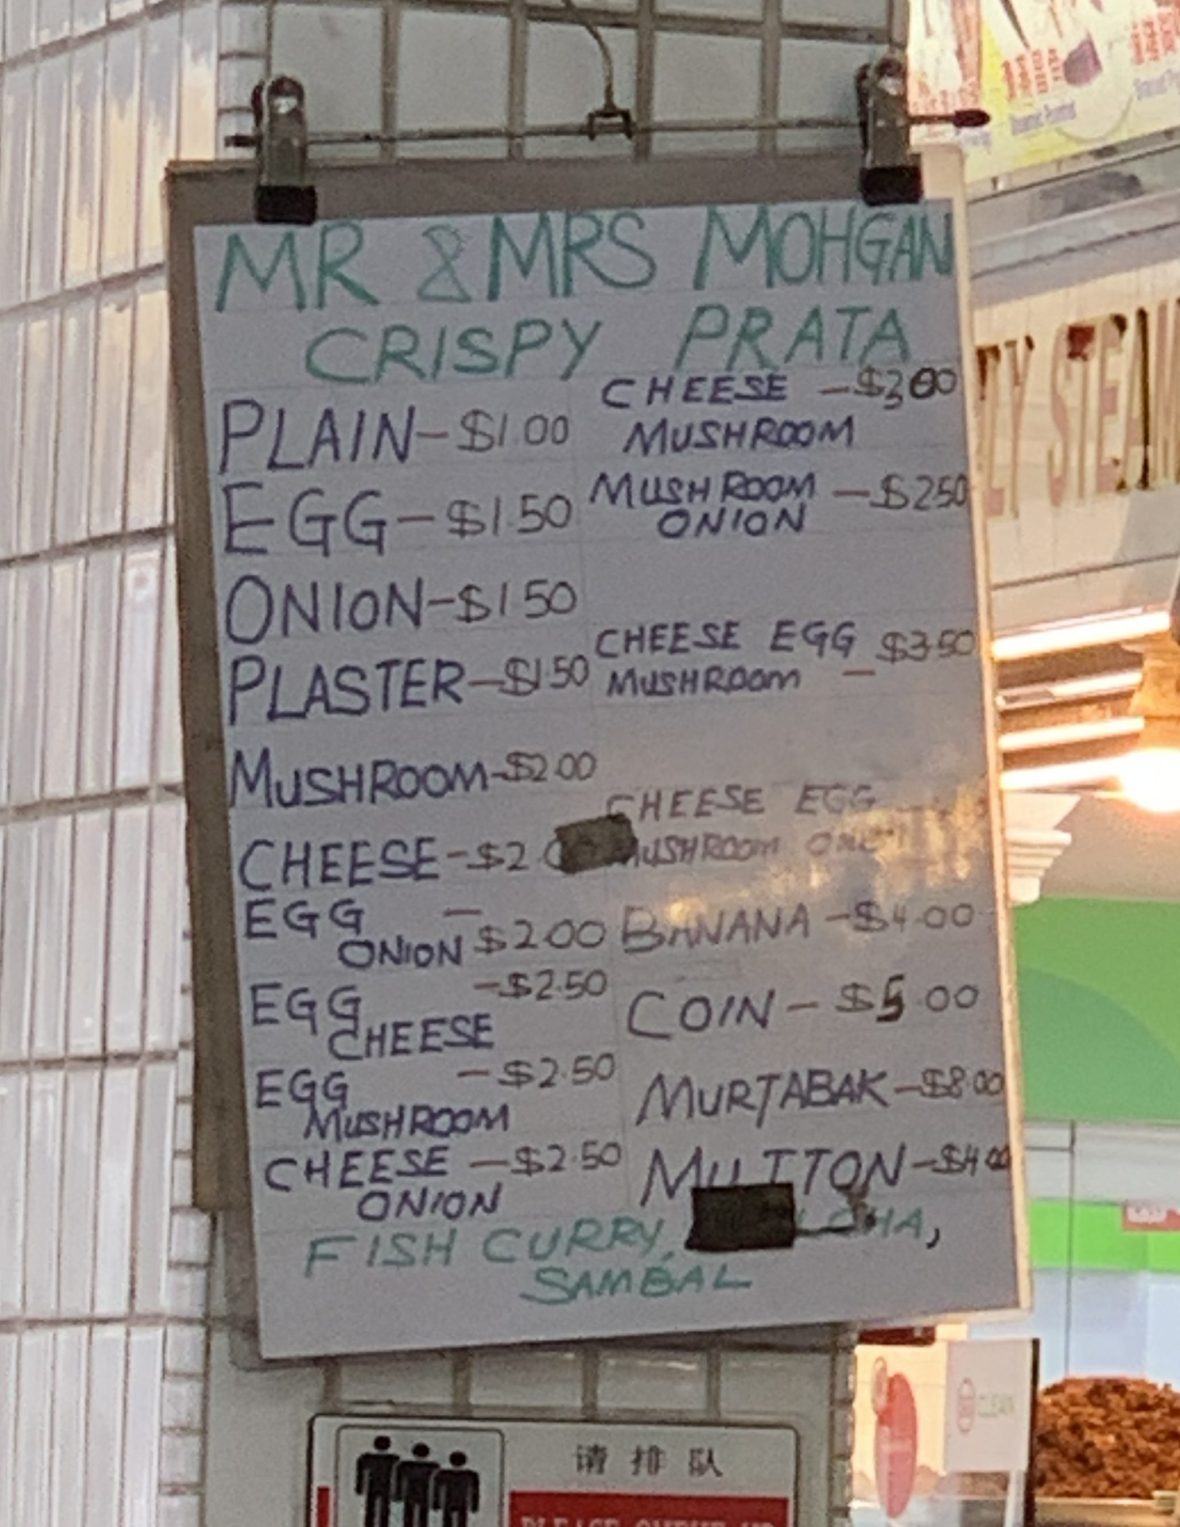 MR & MRS MOHGAN
CRISPY PRATA
PLAIN-$1.00
EGG-$1.50
ONION-$1.50
PLASTER-$1.50
MUSHROOM-$2.00
CHEESE-$2.
EGG -
ONION $2.00
EGG -$2.50
CHEESE
EGG -$2.50
MUSHROOM
CHEESE -$2.50
ONION
CHEESE -$3.00
MUSHROOM
MUSHROOM -$2.50
ONION
CHEESE EGG $3.50
MUSHROOM -
CHEESE EGG
MUSHROOM ONION
BANANA -$4.00
COIN - $5.00
MURTABAK-$8.00
MUTTON-$4.00
FISH CURRY,
SAMBAL
请排队
PLEASE QUEUE UP
CLEAN